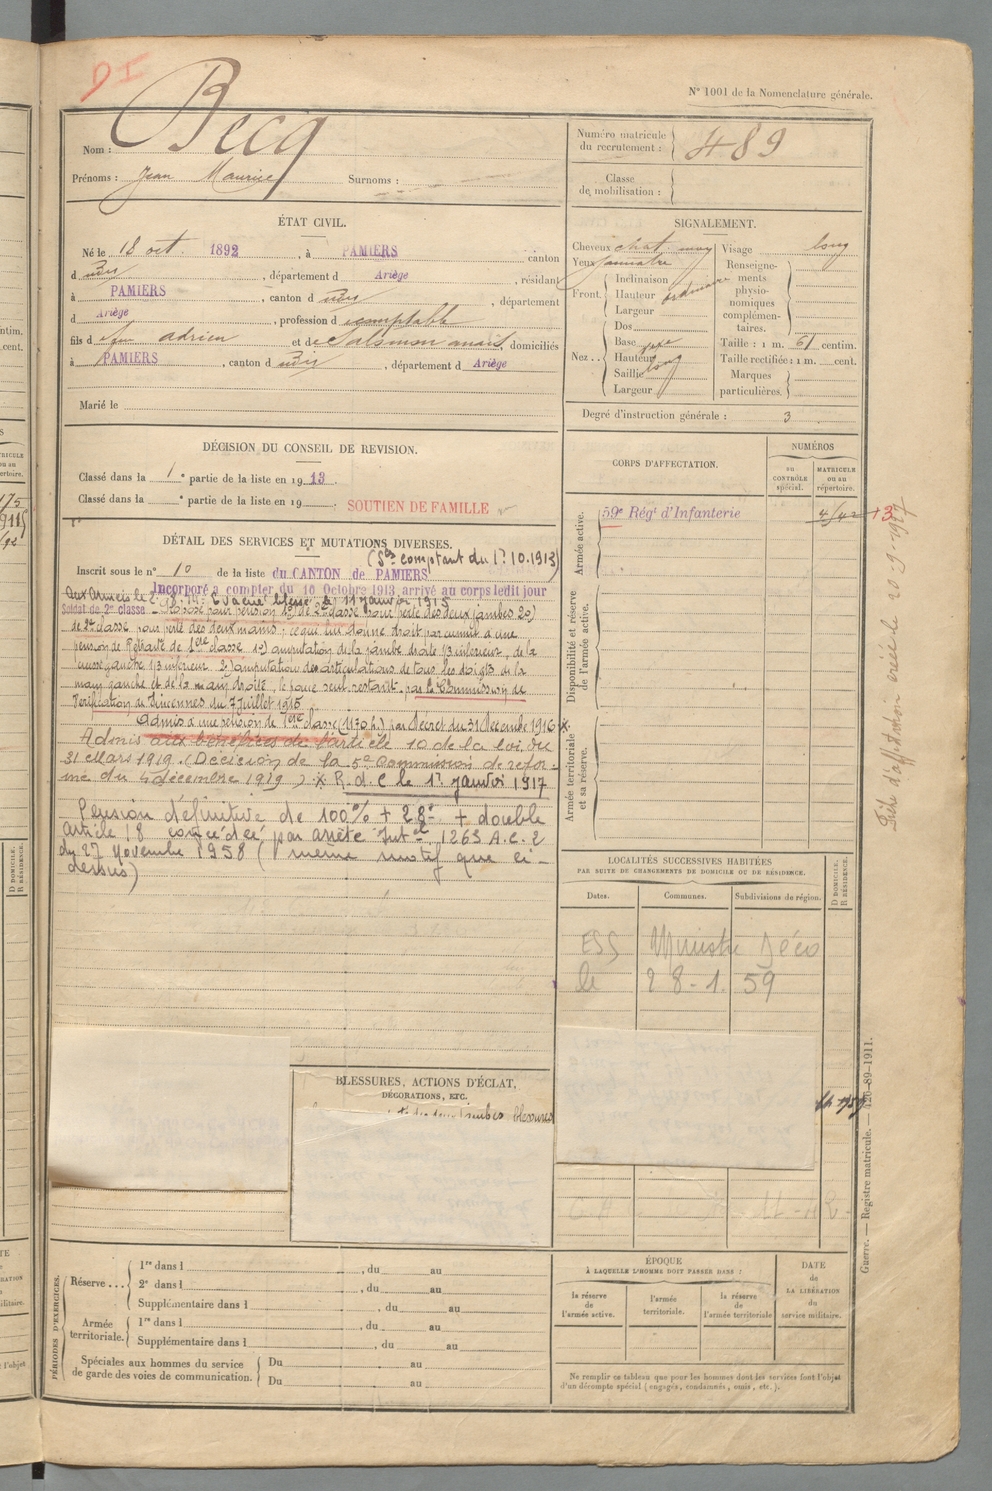 DI
N° 1001 de la Nomenclature générale.
Nom : Becq
Prénoms : Jean Maurice Surnoms :
Numéro matricule du recrutement : 489
Classe de mobilisation :
ÉTAT CIVIL.
Né le 18 oct 1892, à PAMIERS canton
d udit, département d Ariège, résidant
à PAMIERS, canton d udit, département
d Ariège, profession d comptable
fils d adrien et de Salsmon anaïs, domiciliés
à PAMIERS, canton d udit, département d Ariège
Marié le
SIGNALEMENT.
Cheveux chat. moy Visage long
Yeux jaunatre
Front. Inclinaison
Hauteur ordinaire
Largeur
Nez.. Dos
Base
Hauteur
Saillie
Largeur
Renseignements physionomiques complémentaires.
Taille : 1 m. 61 centim.
Taille rectifiée : 1 m. cent.
Marques particulières.
Degré d'instruction générale : 3
DÉCISION DU CONSEIL DE REVISION.
Classé dans la 1e partie de la liste en 1913.
Classé dans la e partie de la liste en 19 . SOUTIEN DE FAMILLE
DÉTAIL DES SERVICES ET MUTATIONS DIVERSES.
(Ses comptant du 1er.10.1913)
Inscrit sous le n° 10 de la liste du CANTON de PAMIERS
Incorporé à compter du 10 Octobre 1913 arrivé au corps ledit jour
Soldat de 2e classe
Aux Armées le 2.8.14. Evacué blessé le 11 janvier 1915
Proposé pour pension 1°) de 2e classe pour perte des deux jambes 2°)
de 2e classe pour perte des deux mains ; ce qui lui donne droit par cumul à une
pension de Retraite de 1ère classe 1°) amputation de la jambe droite 1/3 inférieur, de la
cuisse gauche 1/3 inférieur. 2°) amputation des articulations de tous les doigts de la
main gauche et de la main droite, le pouce seul restant. par la Commission de
Vérification de Vincennes du 7 Juillet 1915
Admis à une pension de 1ère classe (1170 f.) par Décret du 31 Décembre 1916 x.
Admis aux bénéfices de l'article 10 de la loi du
31 Mars 1919. (Décision de la 5e commission de réfor-
me du 4 décembre 1919) x R.d.C le 1er janvier 1917
Pension définitive de 100% + 28° + double
article 18 concédée par arrêté Intel 1263 A.C.2
du 27 novembre 1958 (même motif que ci-
dessus)
CORPS D'AFFECTATION.
NUMÉROS
au CONTRÔLE spécial.
MATRICULE ou au répertoire.
Armée active.
59e Régt d'Infanterie
Disponibilité et réserve de l'armée active.
Armée territoriale et sa réserve.
LOCALITÉS SUCCESSIVES HABITÉES
PAR SUITE DE CHANGEMENTS DE DOMICILE OU DE RÉSIDENCE.
Dates. Communes. Subdivisions de région.
D DOMICILE.
R RÉSIDENCE.
ESS Ministre Déco
le 28-1.59
BLESSURES, ACTIONS D'ÉCLAT,
DÉCORATIONS, ETC.
jambes blessures
PÉRIODES D'EXERCICES.
Réserve... 1re dans l , du au
2e dans l , du au
Supplémentaire dans l , du au
Armée territoriale. 1re dans l , du au
Supplémentaire dans l , du au
Spéciales aux hommes du service de garde des voies de communication. Du au
Du au
ÉPOQUE
À LAQUELLE L'HOMME DOIT PASSER DANS :
la réserve de l'armée active.
l'armée territoriale.
la réserve de l'armée territoriale
DATE de LA LIBÉRATION du service militaire.
Ne remplir ce tableau que pour les hommes dont les services font l'objet
d'un décompte spécial (engagés, condamnés, omis, etc.).
Guerre. — Registre matricule. — 426-89-1911.